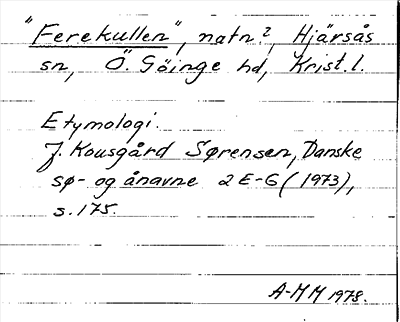 "Ferekullen", natn?, Hjärsås
sn, Ö. Göinge hd, Krist. l.
Etymologi.
J. Kousgård Sørensen, Danske
sø- og ånavne 2 E-G (1973),
s. 175.
A-MM 1978.